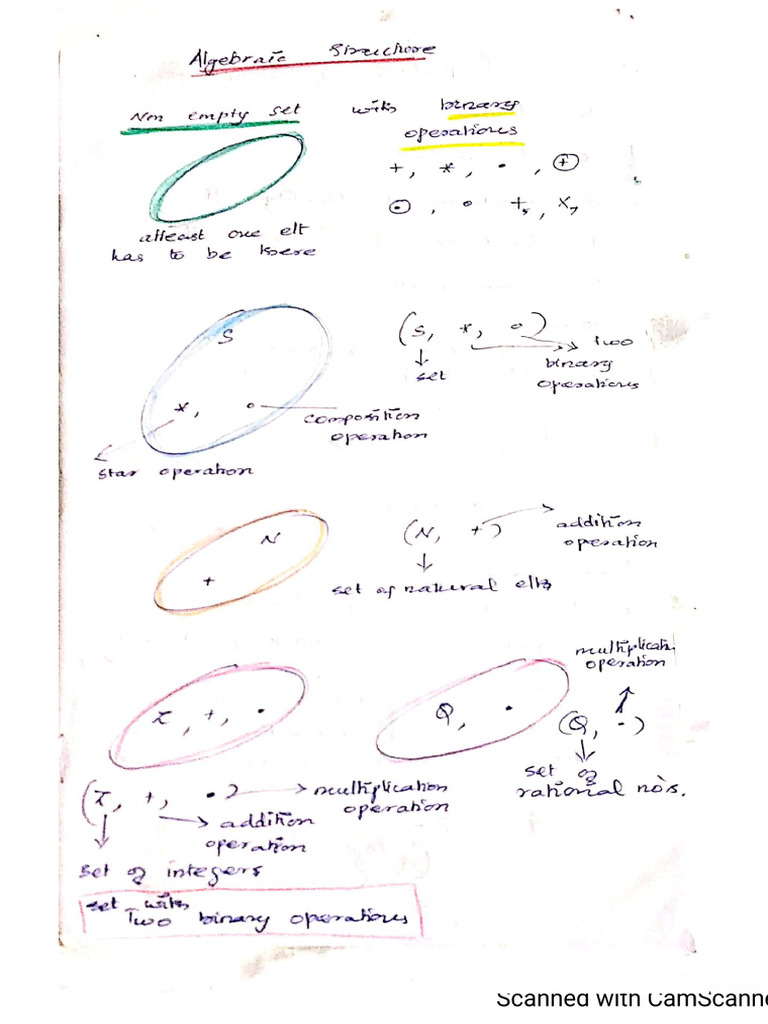 Algebraic Structure
Non empty set with binary
operations
+, *, ·, ⊕
⊙, ∘ +₅, ×₇
atleast one elt
has to be there
S
(S, *, ∘) → two
binary
operations
set
*, ∘ composition
operation
star operation
N
+
(N, +) addition
operation
set of natural elts
multiplicatn
operation
Z, +, ·
Q, ·
(Q, ·)
set of
rational no's.
(Z, +, ·) → multiplication
operation
addition
operation
set of integers
set with
Two binary operations
Scanned with CamScanne